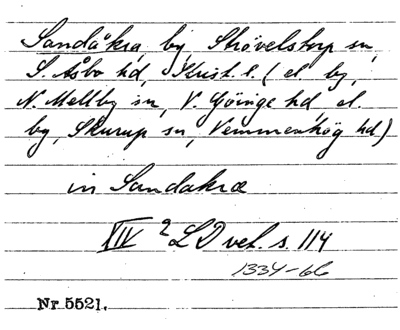 Sandåkra, by, Strövelstorp sn,
S. Åsbo hd, Krist. l. (el. by,
N. Mellby sn, V. Göinge hd, el.
by, Skurup sn, Vemmenhög hd)
in Sandakræ
XIV 2 LD vet. s. 114
1334-66
Nr. 5521.